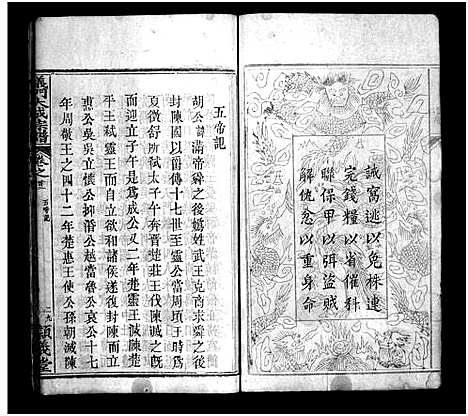 誡窩逃以免株連
完錢糧以省催科
聯保甲以弭盜賊
解讎忿以重身命
五帝記
胡公諱滿帝舜之後媯姓武王克商求舜之後
封陳國以侯爵傳十七世至靈公當周頃王時為
夏徵舒所弒太子午奔晉楚莊王伐陳誠之旣
而迎立子午是爲成公又二年楚靈王誠陳楚
平王弒靈王而自立欲和諸侯遂復封陳而立
惠公吳立懷公抑湣公越當魯公哀公十七
年周敬王之四十二年楚惠王使公孫朝滅陳
義門大成宗譜
卷之
五帝記
義堂